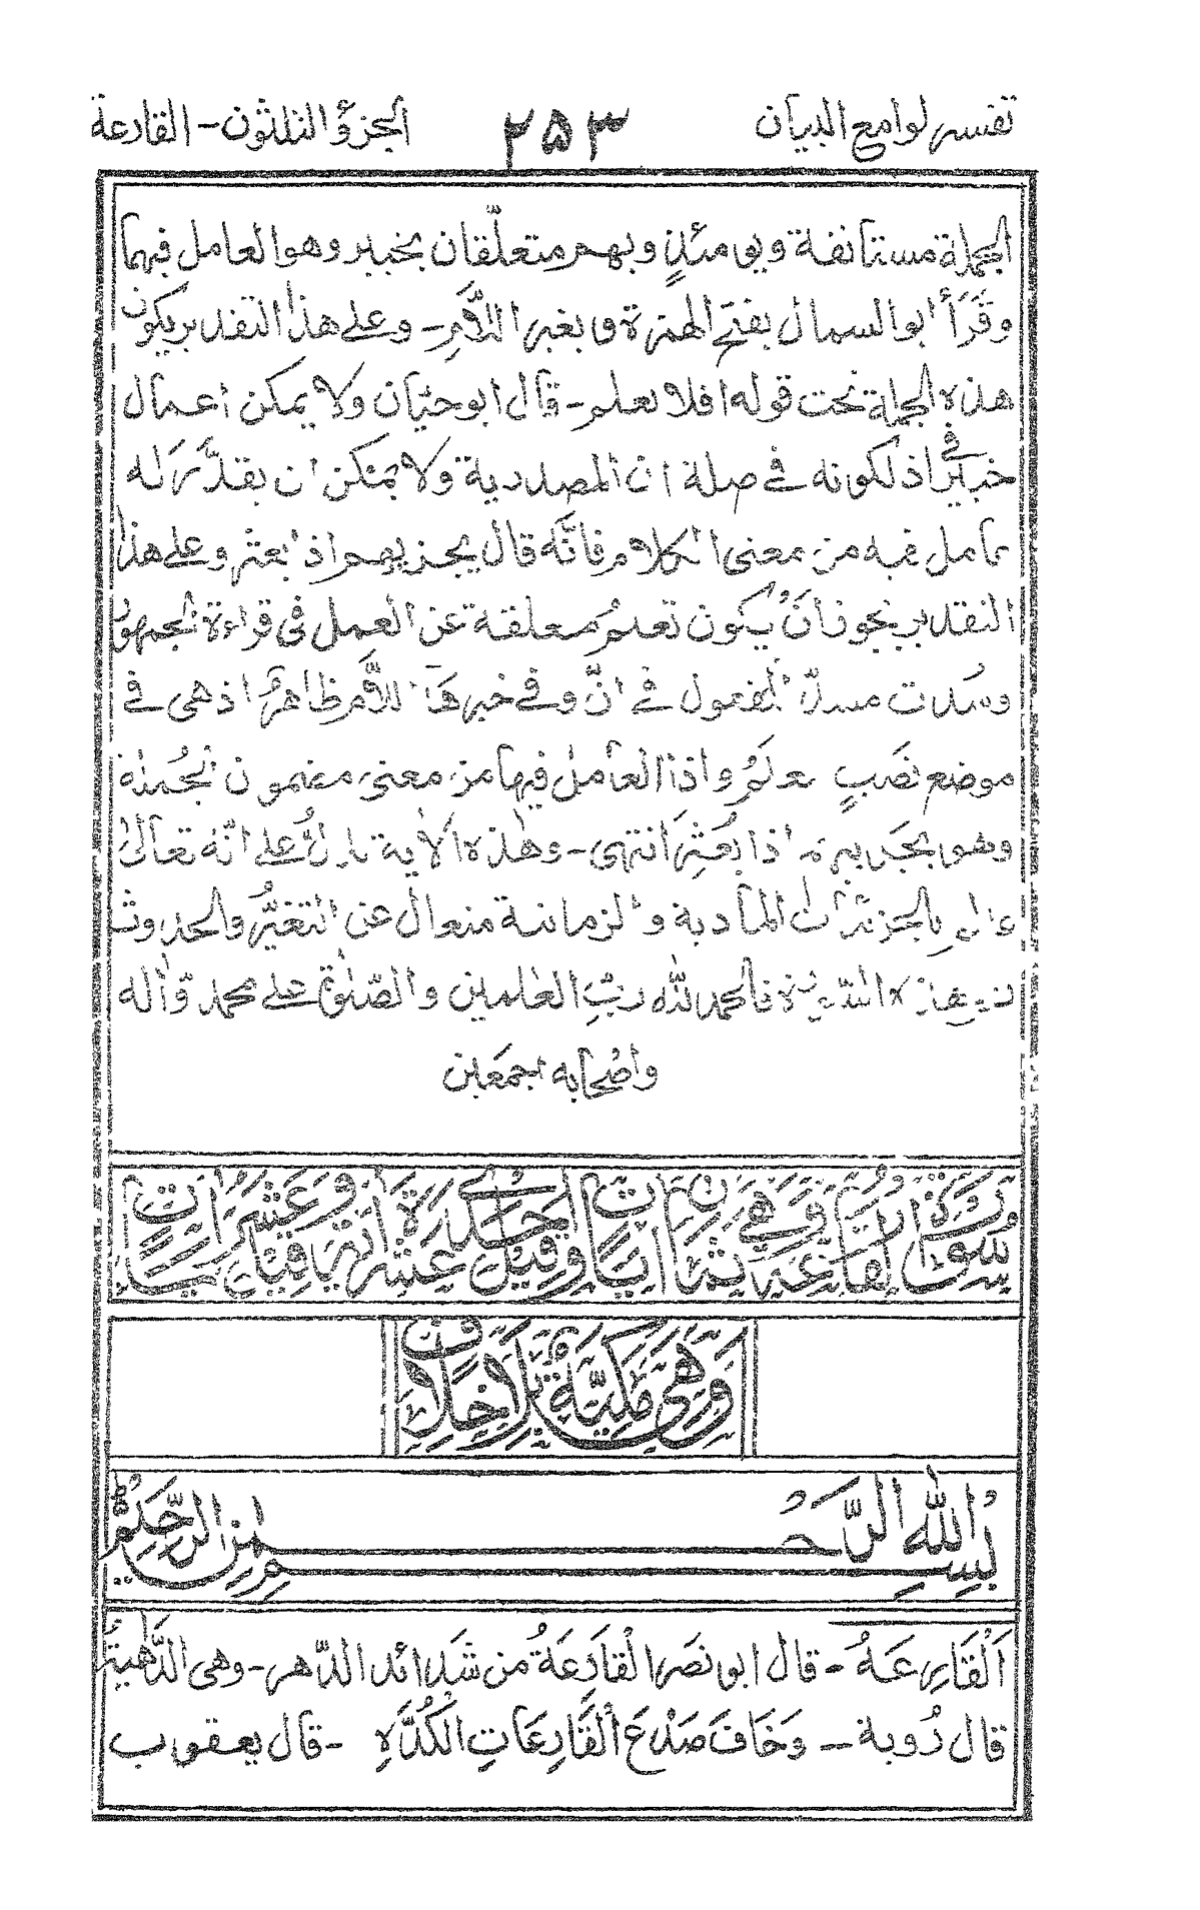 تفسير لوامع البيان ٢٥٣ الجزؤ الثلثون – القارعة
الجملة مستانفة ويومئذٍ وبهم متعلّقان بخبير وهو العامل فيهما
وقَرَأ ابو السمال بفتح الهمزة وبغير اللّام – وعلى هذا التقدير يكون
هذه الجملة تحت قوله افلا يعلم – قال ابو حيّان ولا يمكن اعمال
خبير في اذ لكونه في صلة ان المصدرية ولا يمكن ان يقدّر له
عامل فيه من معنى الكلام فانّه قال يجزيهم اذا بعثر وعلى هذا
التقدير يجوز اَن يكون تعلم معلقة عن العمل في قراءة الجمهور
وسُدت مسدّ المفعول في انّ وفي خبرها اللّام ظاهرٌ اذ هى في
موضع نصبٍ بعلم واذا العامل فيها من معنى مضمون الجملة
وهو يجزيهم اذا بُعثِر انتهى – وهٰذه الاٰية تدلّ على انّه تعالىٰ
بالجزئيات المادية والزمانية متعال عن التغيّر والحدوث
فالحمد للّه ربّ العٰلمين والصّلوٰة على محمد وّاٰله
واصحابه اجمعين
سُورة القارعة وهي ثمان اٰيات وقيل عشرة اٰيات وقيل احدى عشرة اٰيات
وَهِيَ مَكِيَّةٌ بِلَا خِلَافٍ
بِسْمِ اللّٰهِ الرَّحْمٰنِ الرَّحِيْمِ
اَلْقَارِعَةُ – قال ابو نصر القارِعَةُ من شَدائد الدّهر – وهى الدّاهية
قال رُوبة – وَخَافَ صَدْعَ الْقَارِعَاتِ الكُدَّهِ – قال يعقوب